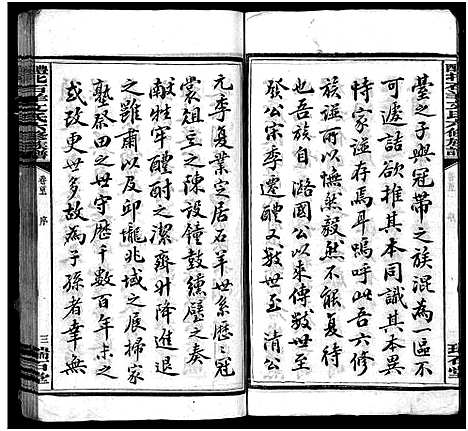 臺之子與冠帶之族混為一區不
可遽詰欲推其本同識其本異
恃家譜存焉耳嗚呼此吾六修
族譜所以憮然毅然不能復待
也吾族自潞國公以來傳數世至
發公宋季遷醴又數世至清公
元季復業定居石羊世系歷歷冠
裳俎豆之陳設鐘鼓纁襞之奏
獻牲牢醴酎之潔齊升降進退
之雝肅以及邱壠兆域之展掃家
塾祭田之世守歷千數百年未之
或改更世多故為子孫者幸無
卷五 序
三 瑞白堂